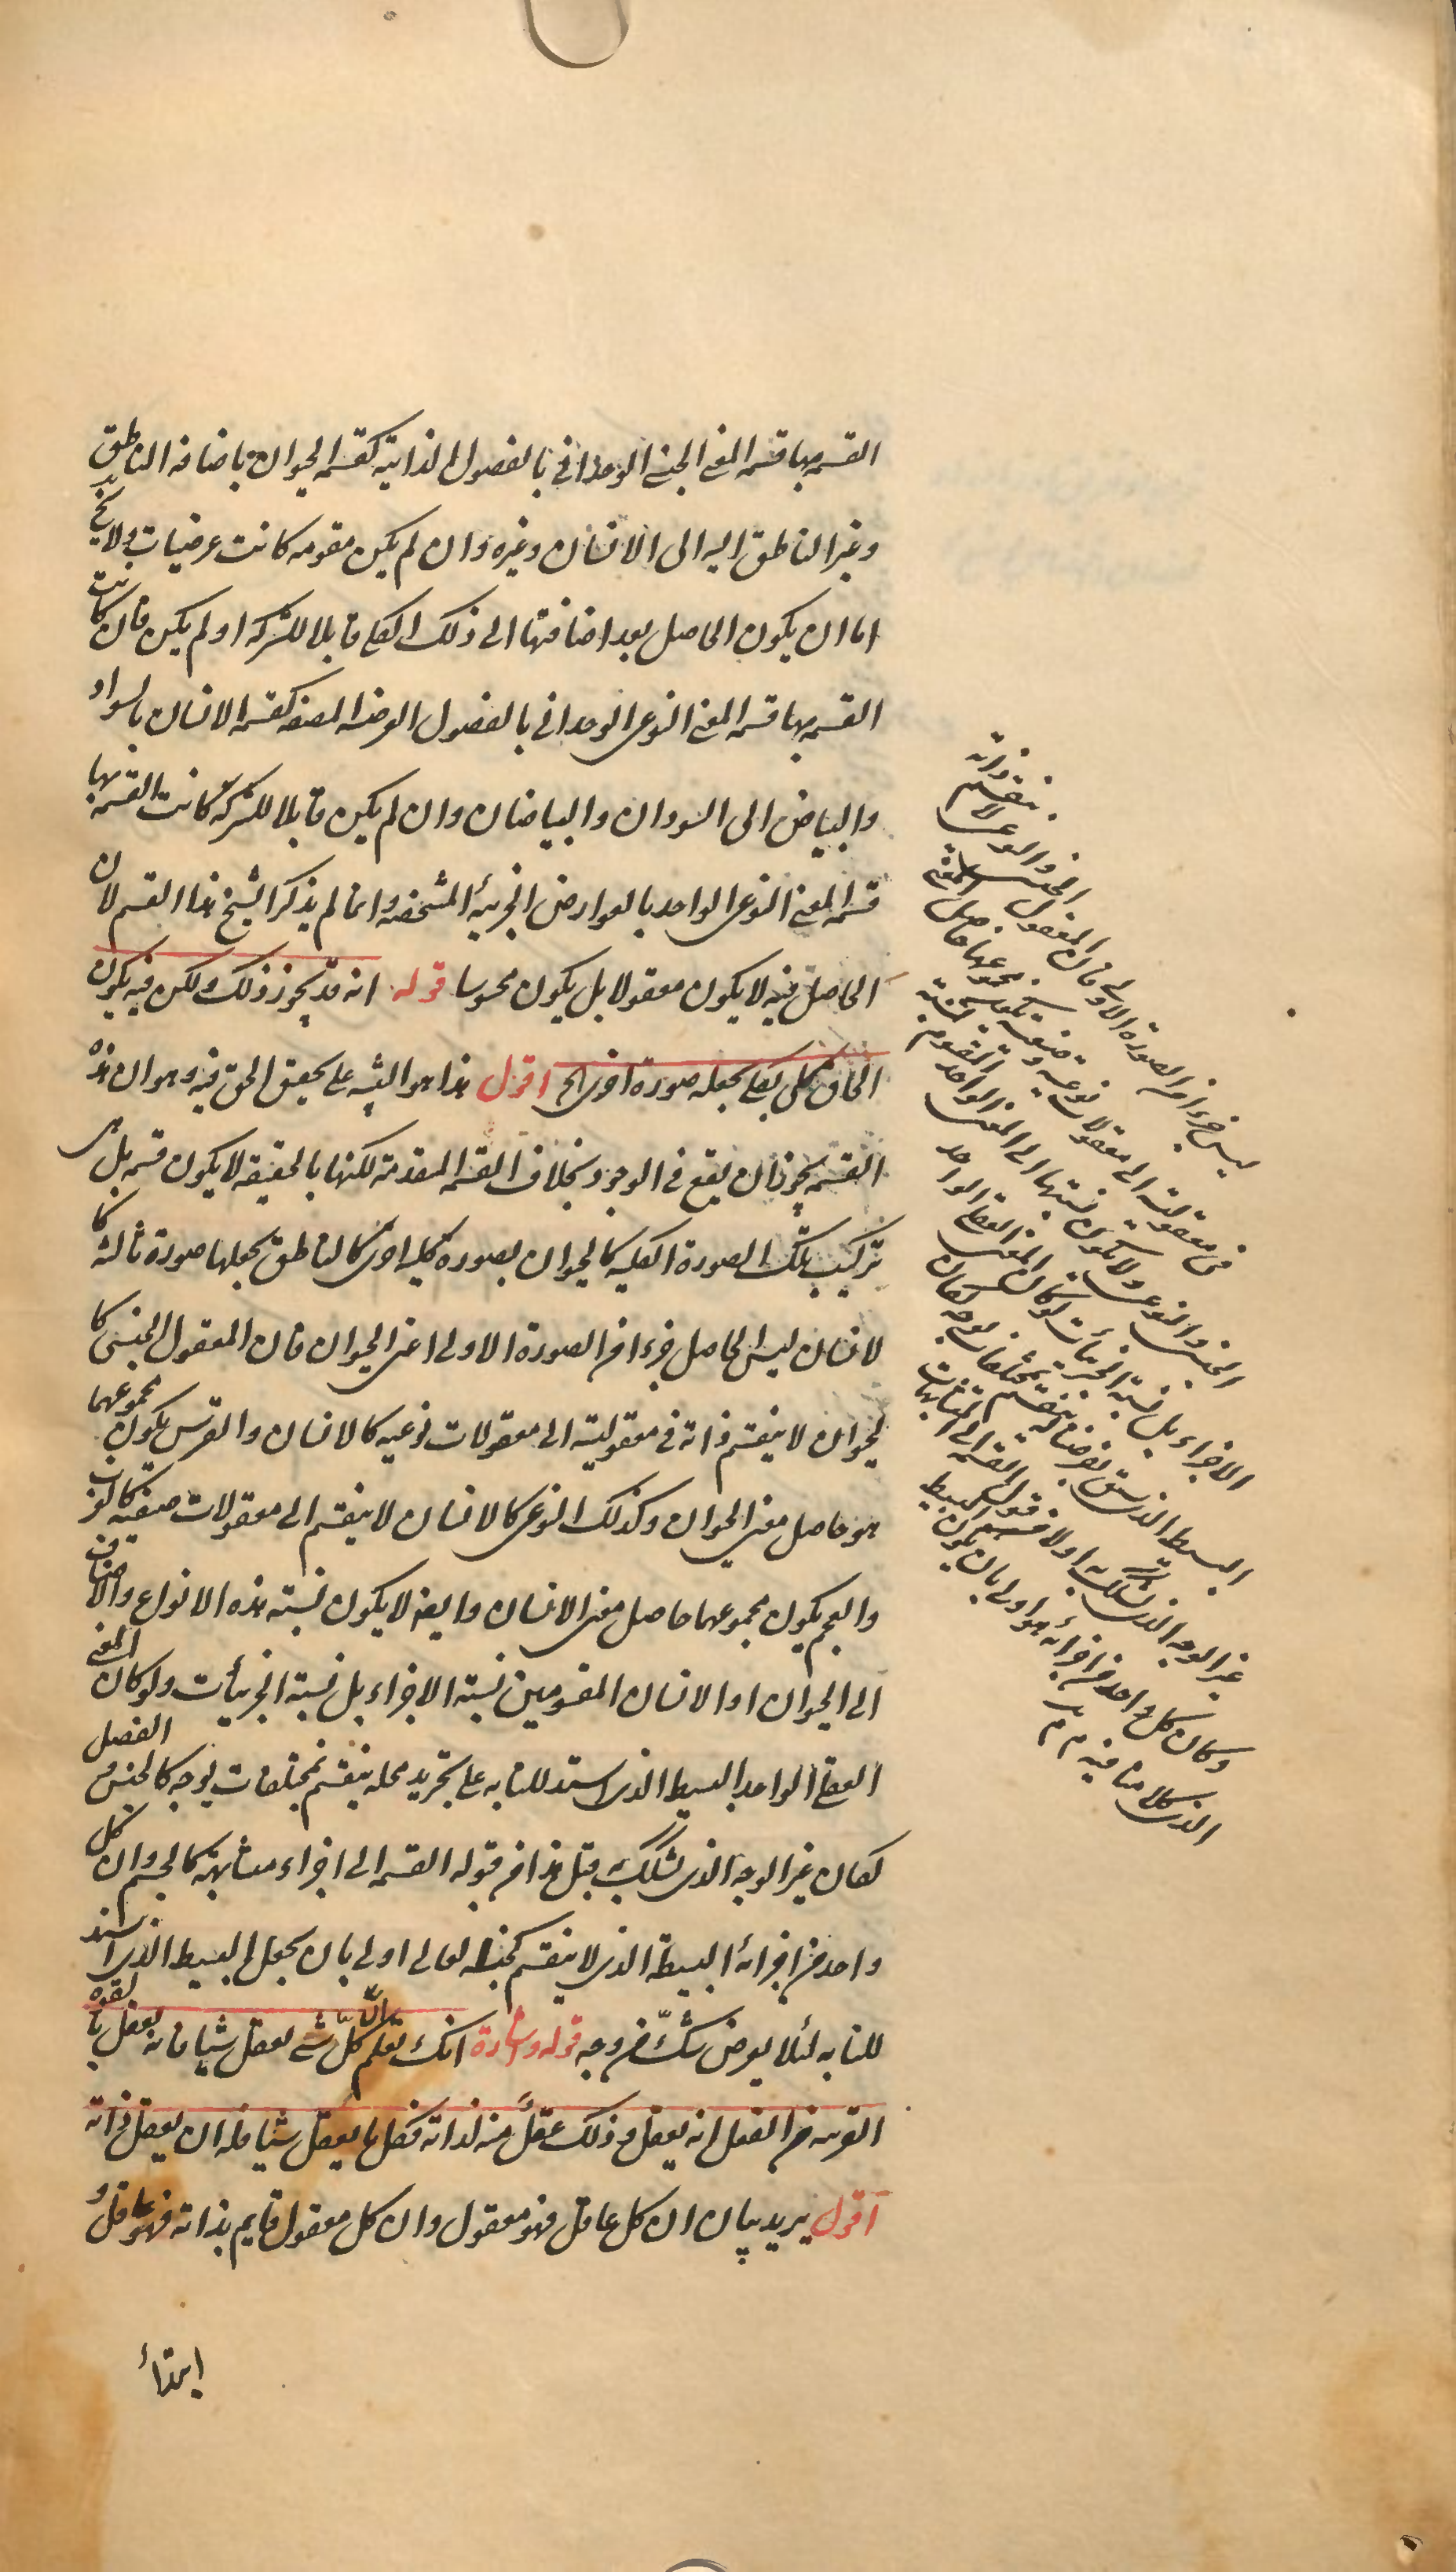 القسمه بها قسمه المعنى الجنسى الوحدانى بالفصول الذاتية كقسمه الحيوان باضافه الناطق
وغير الناطق اليه الى الانسان وغيره وان لم يكن مقومه كانت عرضيات ولا يخ
اما ان يكون الحاصل بعد اضافتها الى ذلك الكلى قابلا للشركه او لم يكن فان كانت
القسمه بها قسمه المعنى النوعى الوحدانى بالفصول العرضيه المصنفه كقسمه الانسان بالسواد
والبياض الى السودان والبياضان وان لم يكن قابلا للشركة كانت القسمه بها
قسمه المعنى النوعى الواحد بالعوارض الجزئيه المشخصه وانما لم يذكر الشيخ هذا القسم لان
الحاصل فيه لا يكون معقولا بل يكون محسوسا قوله انه قد يجوز ذلك ولكن فيه يكون
الحاق كلى بكلى يجعله صورة اخرى الخ اقول هذا هو التنبيه على تحقيق الحق فيه وهو ان هذه
القسمه يجوز ان يقع فى الوجود بخلاف القسمه المتقدمة لكنها بالحقيقه لا يكون قسمه بل هى
تركيب تلك الصورة الكليه كالحيوان بصوره كليه اخرى كالناطق يجعلها صورة ثالثه كا
لانسان ليس الحاصل جزءا من الصورة الاولى اعنى الحيوان فان المعقول الجنسى كا
لحيوان لا ينقسم ذاته فى معقوليته الى معقولات نوعيه كالانسان والفرس يكون مجموعهما
هو حاصل معنى الحيوان وكذلك النوعى كالانسان لا ينقسم الى معقولات صنفيه كالعرب
والعجم يكون مجموعهما حاصل معنى الانسان وايضا لا يكون نسبته هذه الانواع والاصناف
الى الحيوان او الانسان المقسومين نسبة الاجزاء بل نسبة الجزئيات ولو كان المعنى
العقلى الواحد البسيط الذى استدللنا به على تجريد محله ينقسم بمختلفات بوجه كالجنس و الفصل
لكان غير الوجه الذى تشكك به قبل هذا من قبوله القسمه الى اجزاء متشابهة كالجسم وان كل
واحد من اجزائه البسيطة الذى لا ينقسم كجنسه العالى اولى بان يجعل البسيط الذى استد
للنا به لئلا يعرض شك من وجه قوله اشارة انك تعلم انّ كلّ شئ يعقل شيئا فانه يعقل بالقوه
القريبه من الفعل انه يعقل و ذلك عقل منه لذاته فكل ما يعقل شيئا فله ان يعقل ذاته
اقول يريد بيان ان كل عاقل فهو معقول وان كل معقول قايم بذاته فهو عاقل و
ليس جزءا من الصورة الاولى فان المعقول الجنسى والنوعى لا ينقسم ذاته
فى معقوليته الى معقولات نوعيه وصنفيه يكون مجموعها حاصل المعنى
الجنسى والنوعى ولا يكون نسبتها الى المعنى الواحد المقسوم نسبة
الاجزاء بل نسبة الجزئيات ولو كان المعنى العقلى الواحد
البسيط الذى سبق تعرضنا له ينقسم بمختلفات بوجه لكان
غير الوجه الذى تشكك به اولا من قبول القسمه الى المتشابهات
وكان كل واحد من اجزائه هو اولى بان يكون البسيط
الذى كلامنا فيه م م